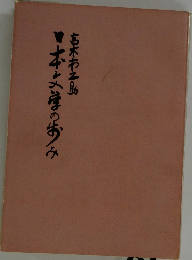 高木市之助
日本文学の歩み